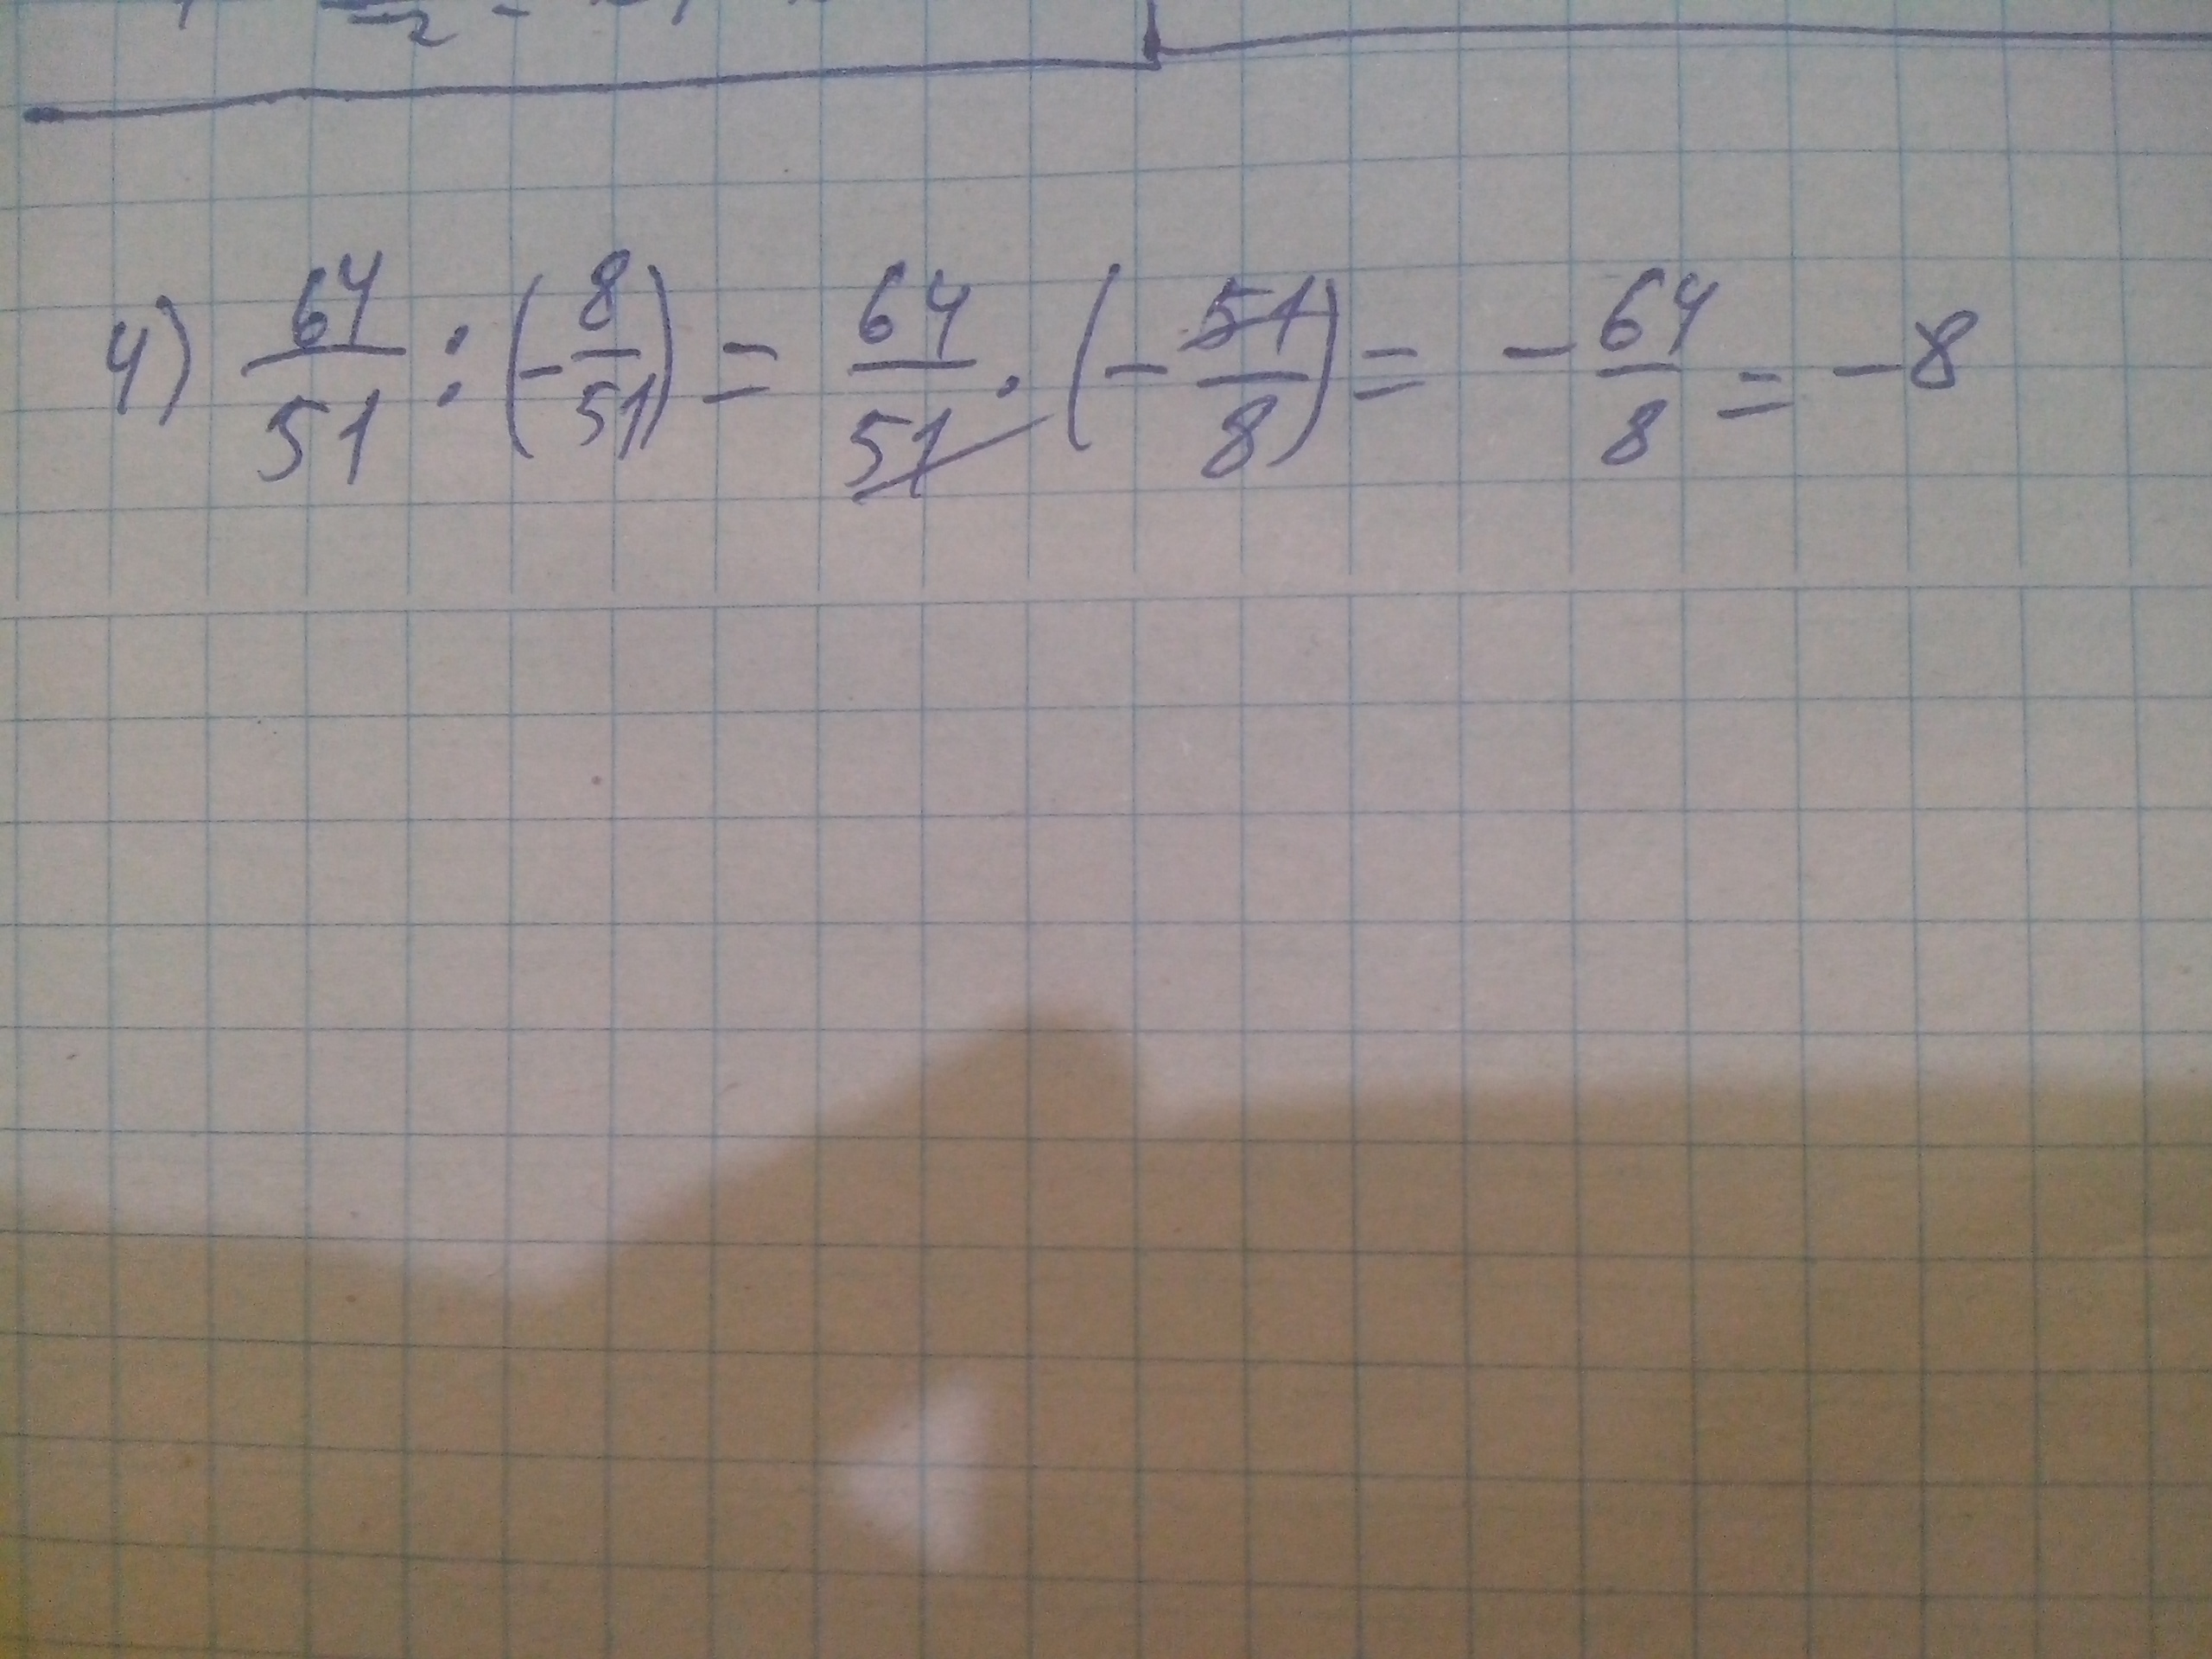 4) 64/51 : (-8/51) = 64/51 · (-51/8) = -64/8 = -8